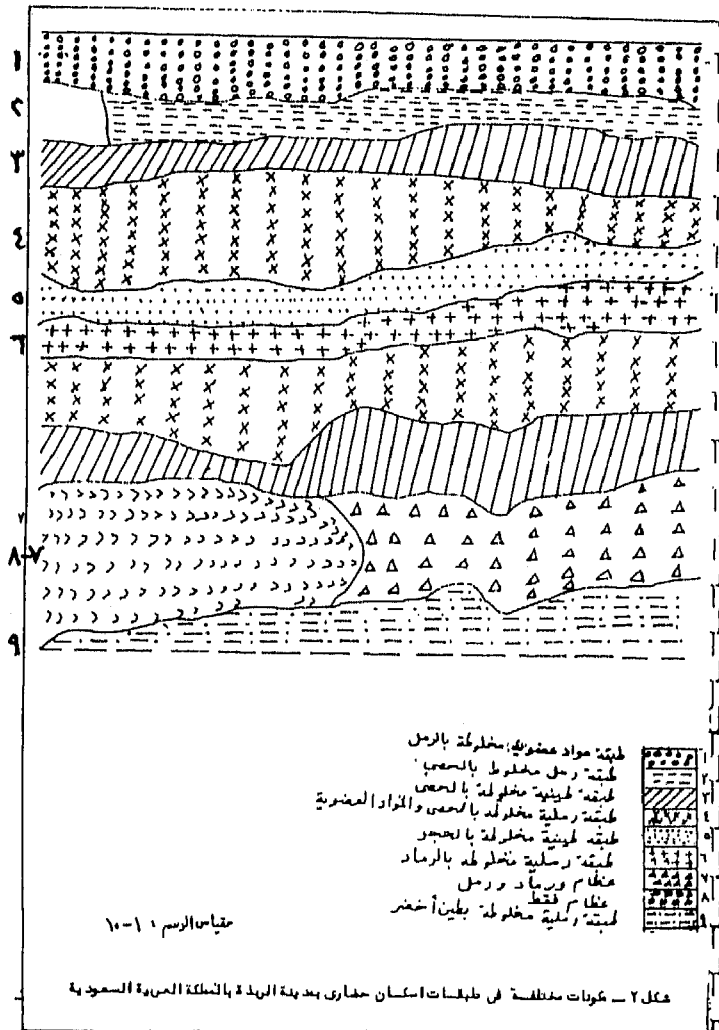 ١
٢
٣
٤
٥
٦
٨-٧
٩
طبقة مواد عضوية مخلوطة بالرمل ١
طبقة رمل مخلوط بالحصى ٢
طبقة طينية مخلوطة بالحصى ٣
طبقة رملية مخلوطة بالحصى والمواد العضوية ٤
طبقة طينية مخلوطة بالحجر ٥
طبقة رملية مخلوطة بالرماد ٦
عظام ورماد ورمل ٧
عظام فقط ٨
طبقة رملية مخلوطة بطين أخضر ٩
مقياس الرسم : ١-١٠
شكل ٢ – مكونات مختلفة فى طبقات اسكان حضارى بمدينة الربذة بالمملكة العربية السعودية